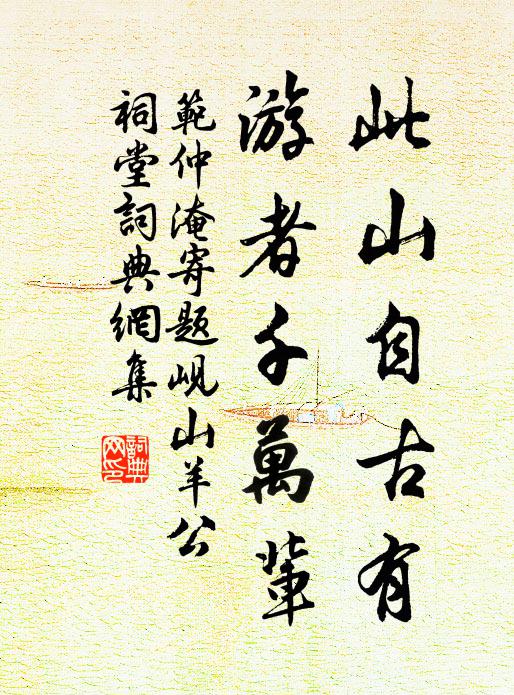 此山自古有
游者千萬輩
範仲淹寄題峴山羊公
祠堂詞典網集
詞典
网印